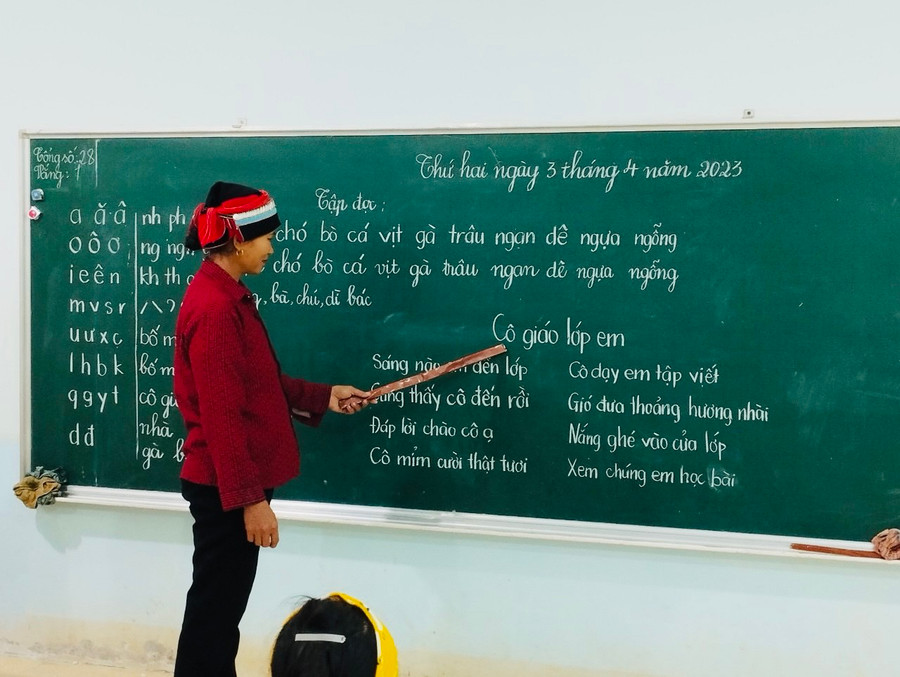 Tổng số: 28
Vắng: 1
Thứ hai ngày 3 tháng 4 năm 2023
Tập đọc:
a ă â
o ô ơ
i e ê n
m v s r
u ư x c
l h b k
q g y t
d đ
nh ph
ng ngh
kh th
bố m
bố m
cô gi
nhà
gà b
chó bò cá vịt gà trâu ngan dê ngựa ngỗng
chó bò cá vịt gà trâu ngan dê ngựa ngỗng
, bà, chú, dì bác
Cô giáo lớp em
Sáng nào đến lớp
thấy cô đến rồi
Đáp lời chào cô ạ
Cô mỉm cười thật tươi
Cô dạy em tập viết
Gió đưa thoảng hương nhài
Nắng ghé vào cửa lớp
Xem chúng em học bài